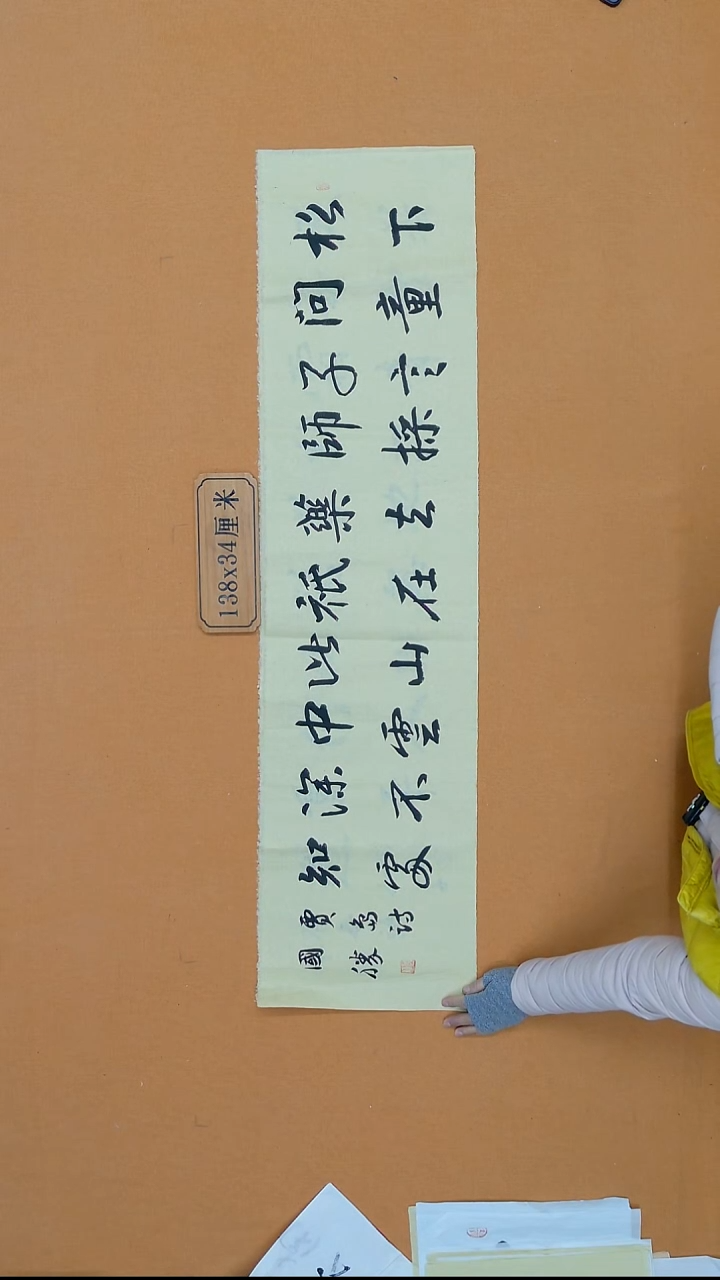 松下
问童
子言
師採
藥去
祇在
此山
中雲
深不
知處
賈島詩
國勝
138x34厘米